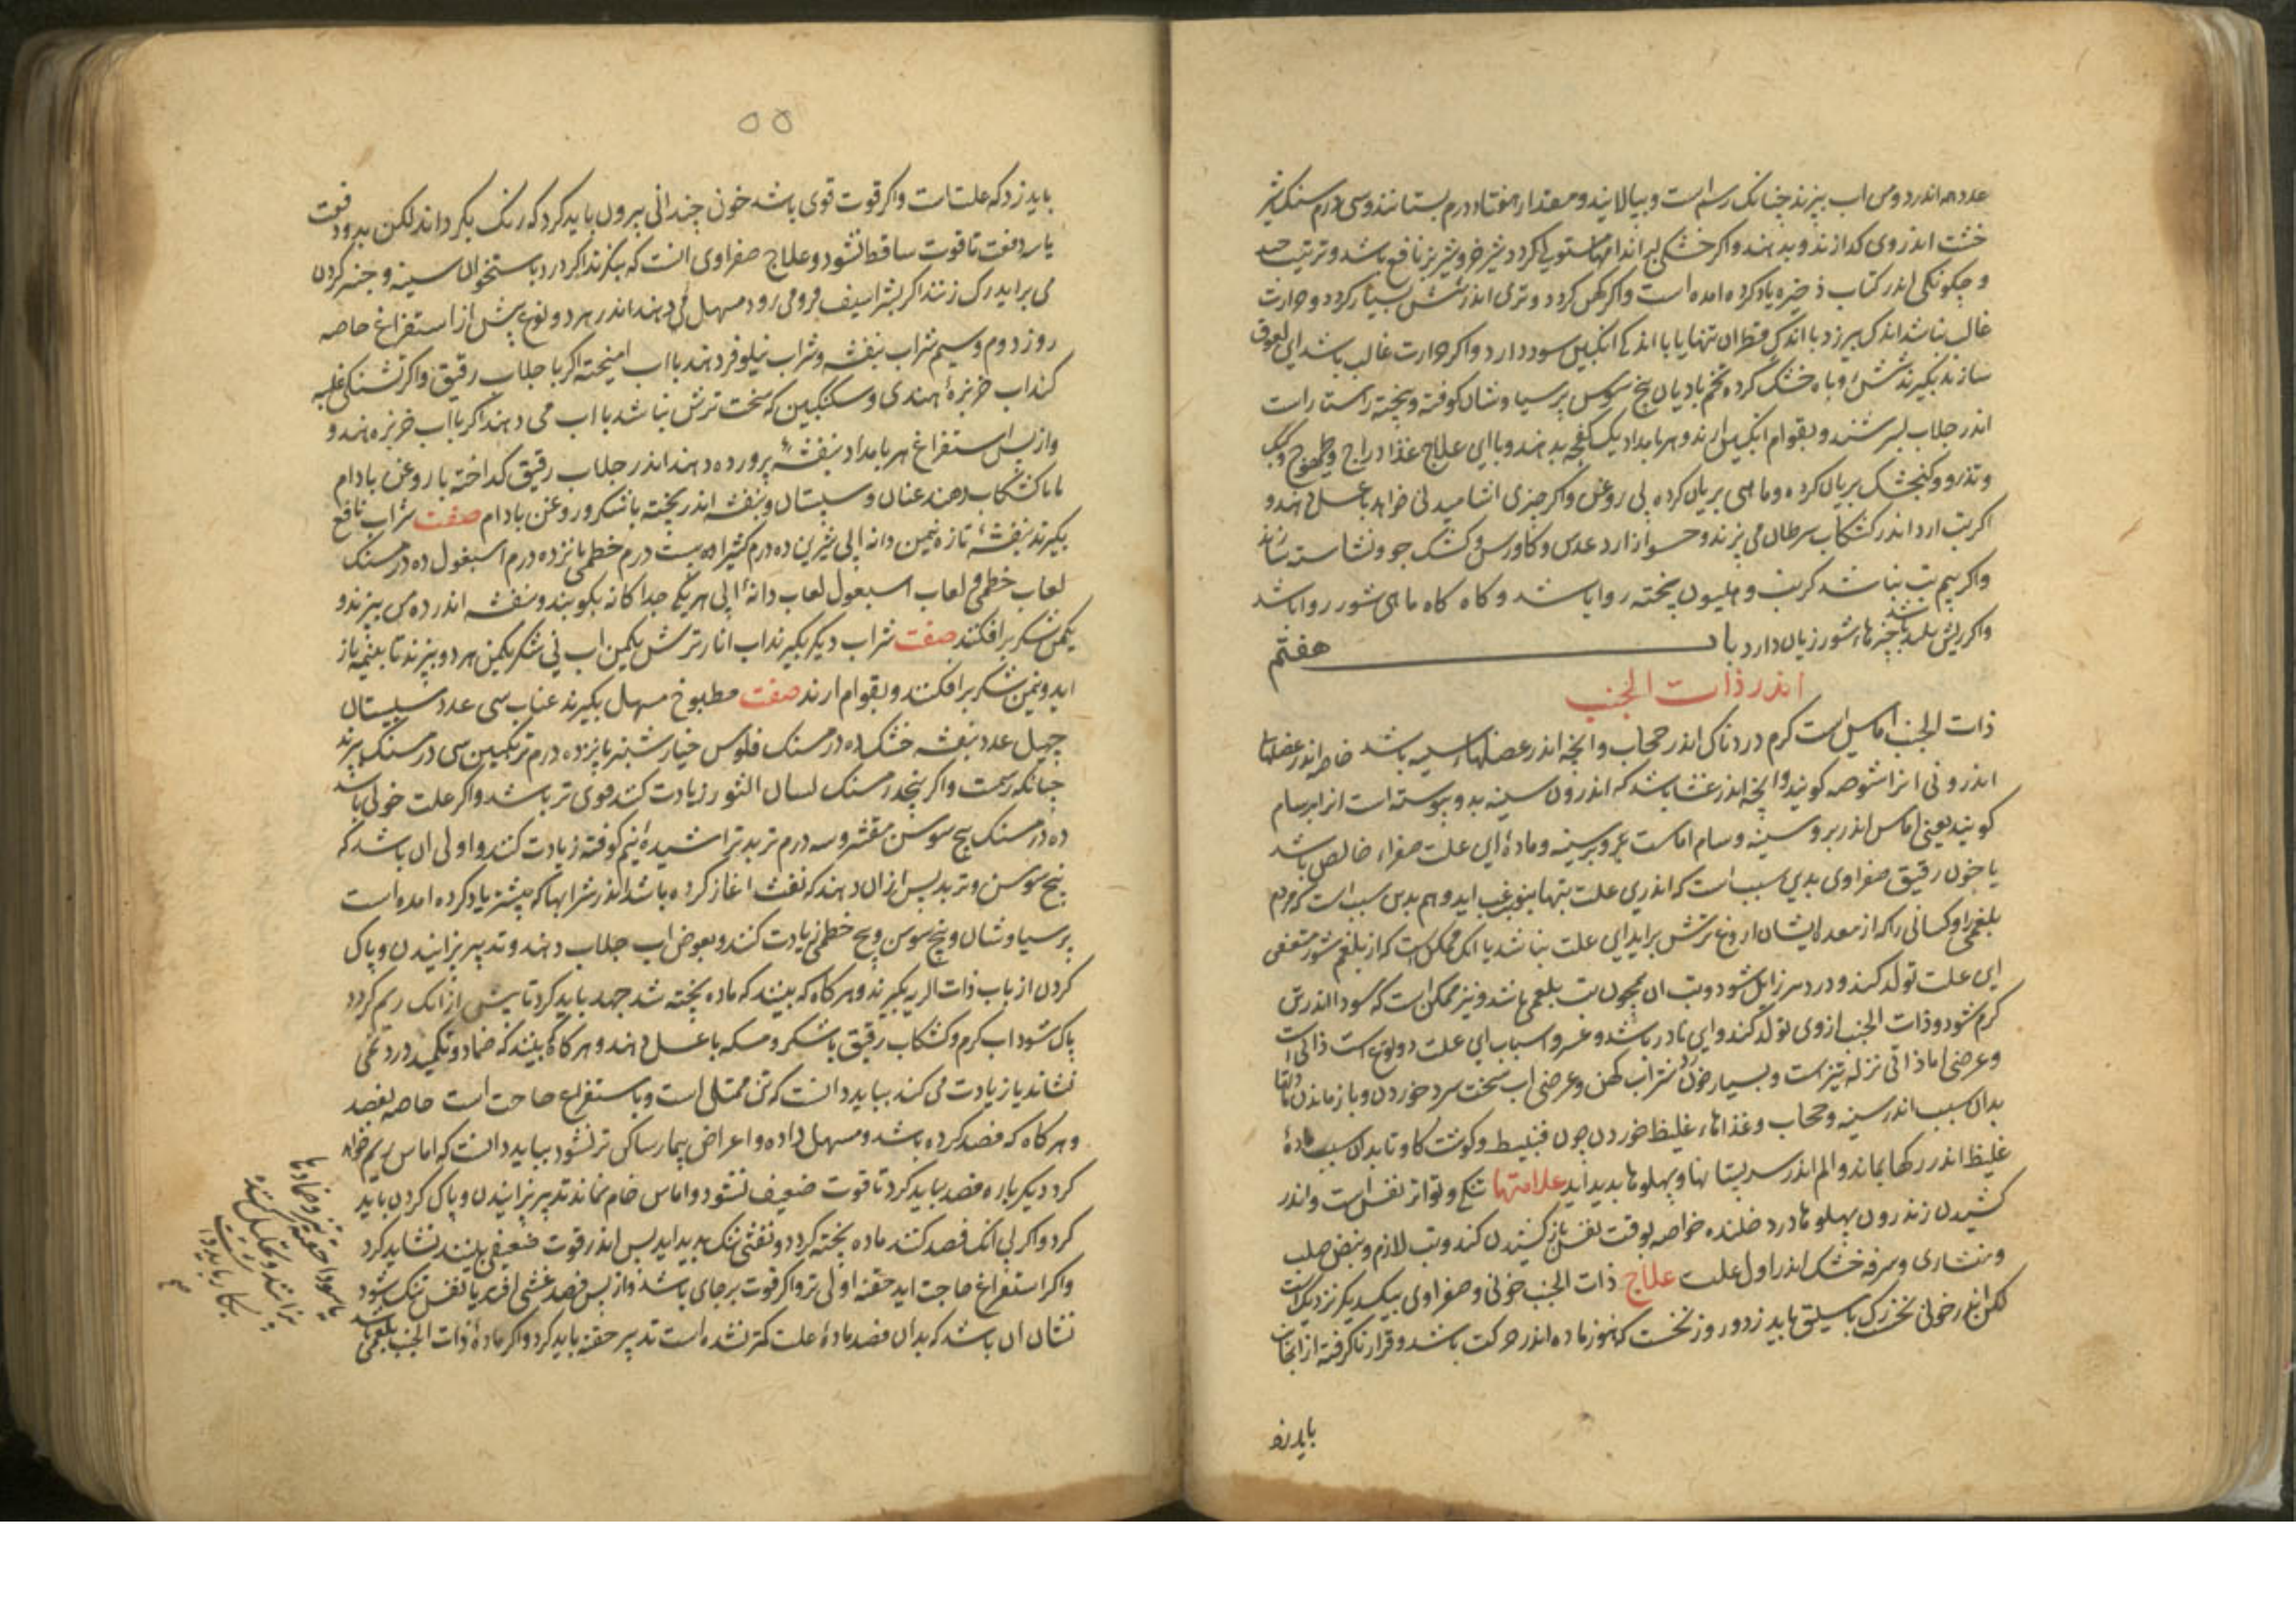 عدد همه اندر دو من اب بپزند چنانک رسم است و بپالایند و مقدار هفتاد درم بستانند و سی درم سنک شیر
خشت اندر وی کدازند و بدهند و اکر خشکی بر اندامها مستولی کردد شیر خر و شیر بز نافع باشد و ترتیب
و چکونکی اندر کتاب ذخیره یاد کرده امده است و اکر کهن کردد و تری اندر شش بسیار کردد و حرارت
غالب نباشد اندکی بیرزد با اندکی قطران تنها یا با اندکی انکبین سود دارد و اکر حرارت غالب باشد این لعوق
سازند بکیرند شش روباه خشک کرده تخم بادیان بیخ سوس پرسیاوشان کوفته و بیخته راستاراست
اندر جلاب بسرشند و بقوام انکبین ارند و هر بامداد یک کفچه بدهند و با این علاج غذا دراج و طیهوج و کبک
و تذرو و کنجشک بریان کرده و ماهی بریان کرده بی روغن و اکر چیزی اشامیدنی خواهد با عسل دهند و
اکر تب ارد اندر کشکاب سرطان می پزند و حسو از ارد عدس و کاورس و کشک جو و نشاسته سازند
و اکر بیم تب نباشد کرنب و هلیون پخته روا باشد و کاه کاه ماهی شور روا باشد
و اکر ریش پلید باشد چیزهاء شور زیان دارد باب هفتم
اندر ذات الجنب
ذات الجنب اماسی است کرم دردناک اندر حجاب و انچه اندر عضلهاء سینه باشد خاصه اندر عضلها
اندرونی انرا شوصه کویند و انچه اندر غشا باشد که اندرون سینه بدو پیوسته است انرا برسام
کویند یعنی اماس اندر بر و سینه و سام اماست و بر سینه و مادهٔ این علت صفراء خالص باشد
یا خون رقیق صفراوی بدین سبب است که اندرین علت تبها بنوبت غب اید و هم بدین سبب است که مردم
بلغمی را و کسانی را که از معدهٔ ایشان اروغ ترش براید این علت نباشد یا انک ممکن است که از بلغم شور متعفن
این علت تولد کند و درد سر زایل شود و تب ان همچون تب بلغمی باشد و نیز ممکن است که سودا اندر تن
کرم شود و ذات الجنب از وی تولد کند و این نادر باشد و عسر و اسباب این علت دو نوع است ذاتی است
و عرضی اما ذاتی نزله تیز است و بسیار خوردن شراب کهن و عرضی اب سخت سرد خوردن و باز ماندن
بدان سبب اندر سینه و حجاب و غذاهاء غلیظ خوردن چون قنبیط و کوشت کاو تا بدان سبب مادهٔ
غلیظ اندر رکها بماند و الم اندر سر پستانها و پهلوها بدید اید علامتها تنکی و تواتر نفس است و اندر
کشیدن زند رون پهلوها درد خلنده خاصه بوقت نفس باز کشیدن کند و تب لازم و نبض صلب
و منشاری و سرفه خشک اندر اول علت علاج ذات الجنب خونی و صفراوی بیکدیکر نزدیک است
لکن اندر خونی نخست رک باسلیق باید زد و روز نخست که هنوز ماده اندر حرکت باشد و قرار ناکرفته از انجانب
باید زد
۵۵
باید زد که علت است و اکر قوت قوی باشد خون چندانی بیرون باید کرد که رنک بکرداند لکن بدو دفعت
یا سه دفعت تا قوت ساقط نشود و علاج صفراوی انست که بنکرند اکر درد باستخوان سینه و چنبر کردن
می براید رک زنند اکر بشراسیف فرو می رود مسهل دهند اندر هر دو نوع پیش از استفراغ خاصه
روز دوم و سیم شراب بنفشه و شراب نیلوفر دهند با اب امیخته اکر با جلاب رقیق و اکر تشنکی غلبه
کند اب خربزهٔ هندی و سکنکبین که سخت ترش نباشد با اب می دهند اکر با اب خربزه هندو
و از پس استفراغ هر بامداد بنفشهٔ پرورده دهند اندر جلاب رقیق کداخته با روغن بادام
یا با کشکاب دهند عناب و سپستان و بنفشه اندر پخته با شکر و روغن بادام صفت شراب نافع
بکیرند بنفشهٔ تازه نیم من دانه ابی شیرین ده درم کثیرا بیست درم خطمی پانزده درم اسبغول ده درمسنک
لعاب خطمی و لعاب اسبغول لعاب دانهٔ ابی هر یکی جداکانه بکوبند و بنفشه اندر ده من بپزند و
یکمن شکر برافکنند صفت شراب دیکر بکیرند اب انار ترش یکمن اب نی شکر یکمن هر دو بپزند تا بنیمه باز
اید و نیم من شکر برافکنند و بقوام ارند صفت مطبوخ مسهل بکیرند عناب سی عدد سپستان
چهل عدد بنفشه خشک ده درمسنک فلوس خیارشنبر پانزده درم ترنکبین سی درمسنک بپزند
چنانکه رسمست و اکر پنج درمسنک لسان الثور زیادت کنند قوی تر باشد و اکر علت خونی باشد
ده درمسنک بیخ سوسن مقشر و سه درم تربد تراشیدهٔ نیم کوفته زیادت کنند و اولی ان باشد که
بیخ سوسن و تربد پس از ان دهند که نفث اغاز کرده باشد اندر شرابها که پیشتر یاد کرده امده است
پرسیاوشان و بیخ سوسن و بیخ خطمی زیادت کنند و بعوض اب جلاب دهند و تدبیر پزانیدن و پاک
کردن از باب ذات الریه بکیرند و هرکاه که بینند که ماده پخته شد جهد باید کرد تا پیش از انک ریم کردد
پاک شود اب کرم و کشکاب رقیق با شکر و مسکه با عسل دهند و هرکاه بینند که ضماد و تکمید درد نمی
نشاند یا زیادت می کند بباید دانست که تن ممتلی است و باستفراغ حاجت است خاصه بفصد
و هرکاه که فصد کرده باشند و مسهل داده و اعراض بیمار ساکن تر نشود بباید دانست که اماس ریم خواهد
کرد دیکر باره فصد بباید کرد تا قوت ضعیف نشود و اماس خام نماند تدبیر پزانیدن و پاک کردن باید
کرد و اکر بی انک فصد کنند ماده پخته کردد و نفثی نیک بدید اید پس اندر قوت ضعیفی بینند نشاید کرد
و اکر استفراغ حاجت اید حقنه اولی تر و اکر قوت برجای باشد و از پس فصد غشی افتد یا نفس تنک شود
نشان ان باشد که بدان فصد مادهٔ علت کمتر نشده است تدبیر حقنه باید کرد و اکر مادهٔ ذات الجنب بلغمی باشد
یا سودا حقنه تیز و ضمادها
بکار باید داشت